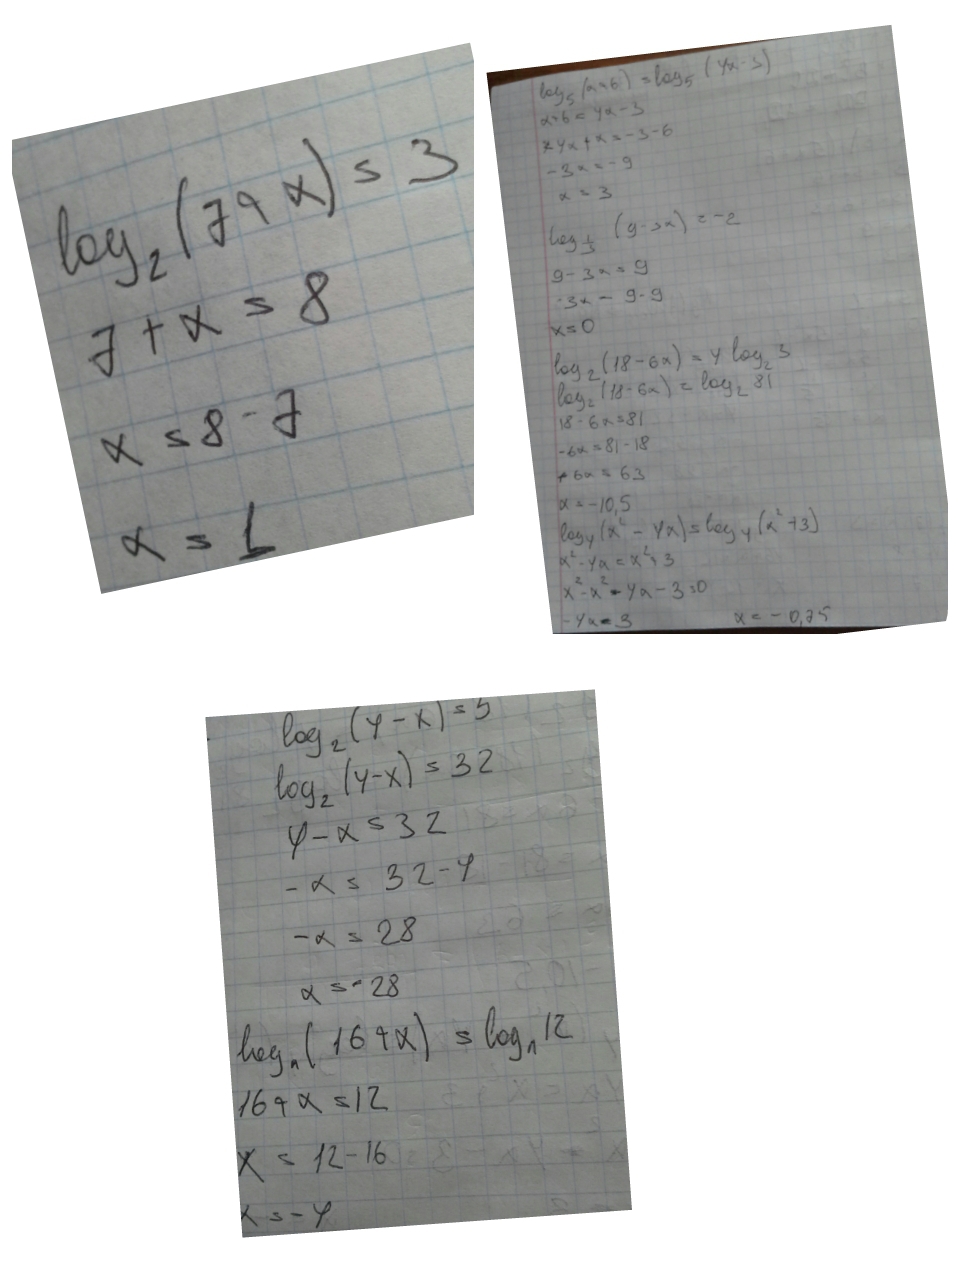 log₂(7+x)=3
7+x=8
x=8-7
x=1
log₅(x+6)=log₅(4x-3)
x+6=4x-3
-4x+x=-3-6
-3x=-9
x=3
log 1/3 (9-3x)=-2
9-3x=9
-3x=9-9
x=0
log₂(18-6x)=4 log₂3
log₂(18-6x)=log₂81
18-6x=81
-6x=81-18
-6x=63
x=-10,5
log₄(x²-4x)=log₄(x²+3)
x²-4x=x²+3
x²-x²-4x-3=0
-4x=3 x=-0,75
log₂(4-x)=5
log₂(4-x)=32
4-x=32
-x=32-4
-x=28
x=-28
logₙ(16+x)=logₙ12
16+x=12
x=12-16
x=-4